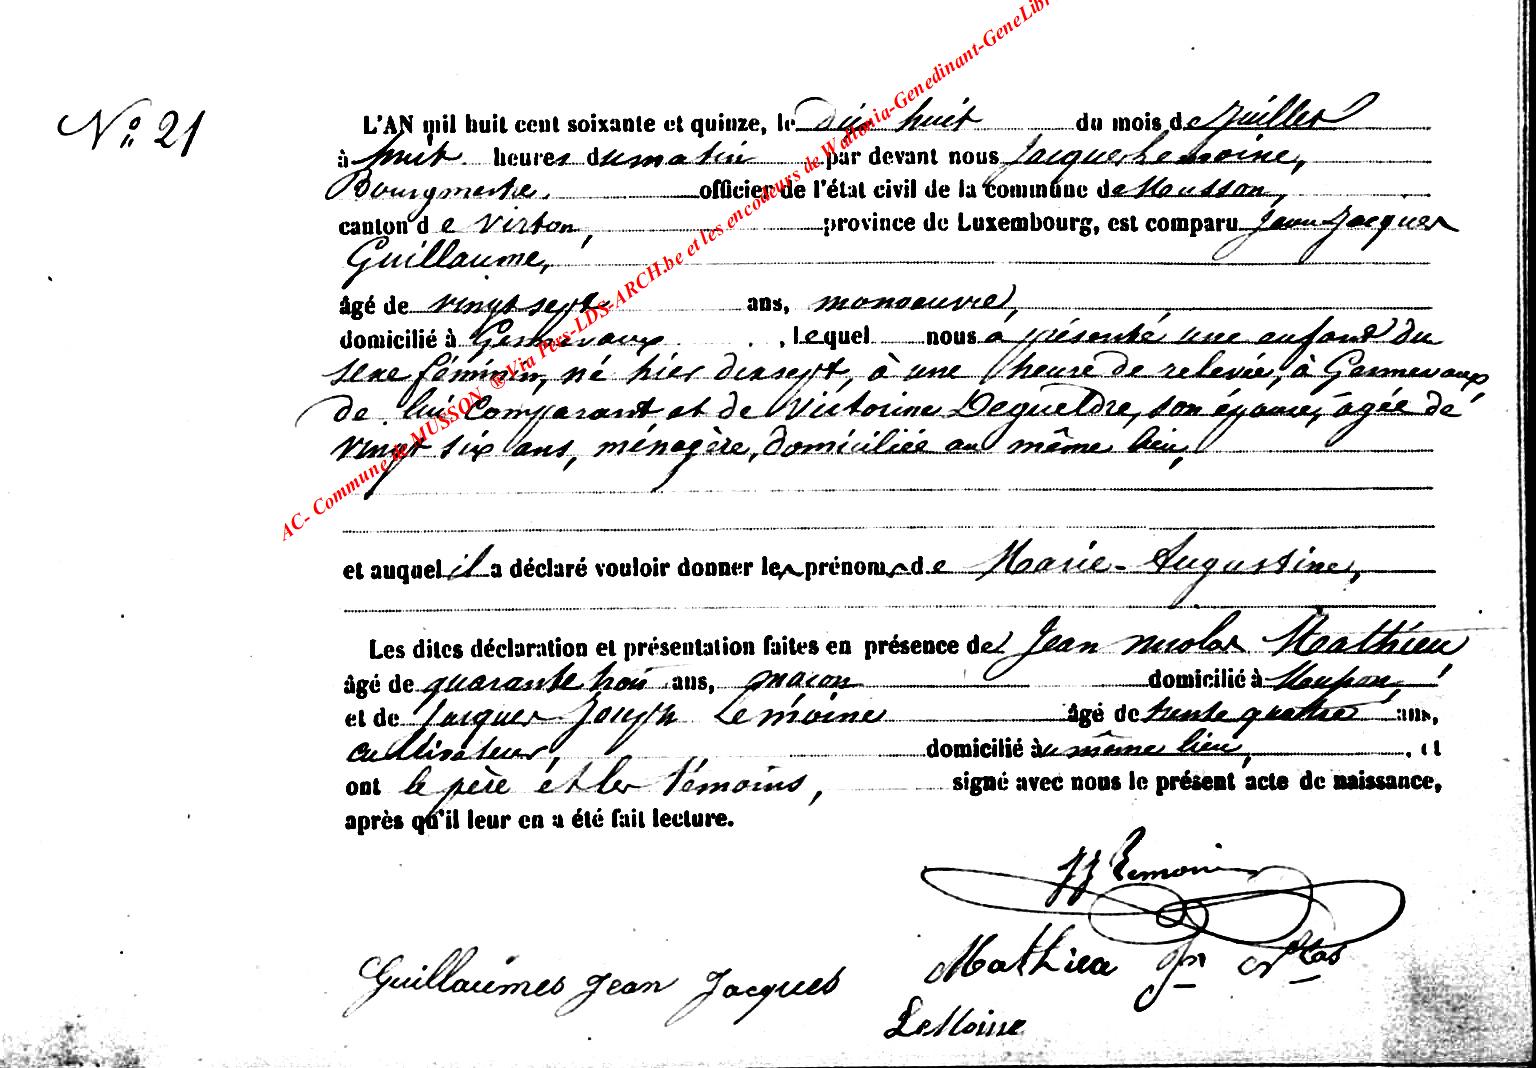 No 21
L'AN mil huit cent soixante et quinze, le dix huit du mois de Juillet
à huit heures du matin par devant nous Jacques Lemoine,
Bourgmestre, officier de l'état civil de la commune de Musson,
canton de Virton, province de Luxembourg, est comparu Jean Jacques
Guillaume,
âgé de vingt sept ans, manoeuvre,
domicilié à Gennevaux, lequel nous a présenté une enfant du
sexe féminin, né hier dixsept, à une heure de relevée, à Gennevaux,
de lui Comparant et de Victorine Degueldre, son épouse, âgée de
vingt six ans, ménagère, domiciliée au même lieu,
et auquel il a déclaré vouloir donner les prénoms de Marie-Augustine,
Les dites déclaration et présentation faites en présence de Jean Nicolas Mathieu
âgé de quarante trois ans, maçon domicilié à
et de Jacques Joseph Lemoine âgé de trente quatre ans,
cultivateur, domicilié au même lieu, et
ont le père et les témoins, signé avec nous le présent acte de naissance,
après qu'il leur en a été fait lecture.
JJ Lemoine
Mathieu Jn Nlas
Guillaumes Jean Jacques
LeMoine
AC- Commune de MUSSON ® Via Pers-LDS-ARCH.be et les encodeurs de Wallonia-Genedinant-GeneLibr